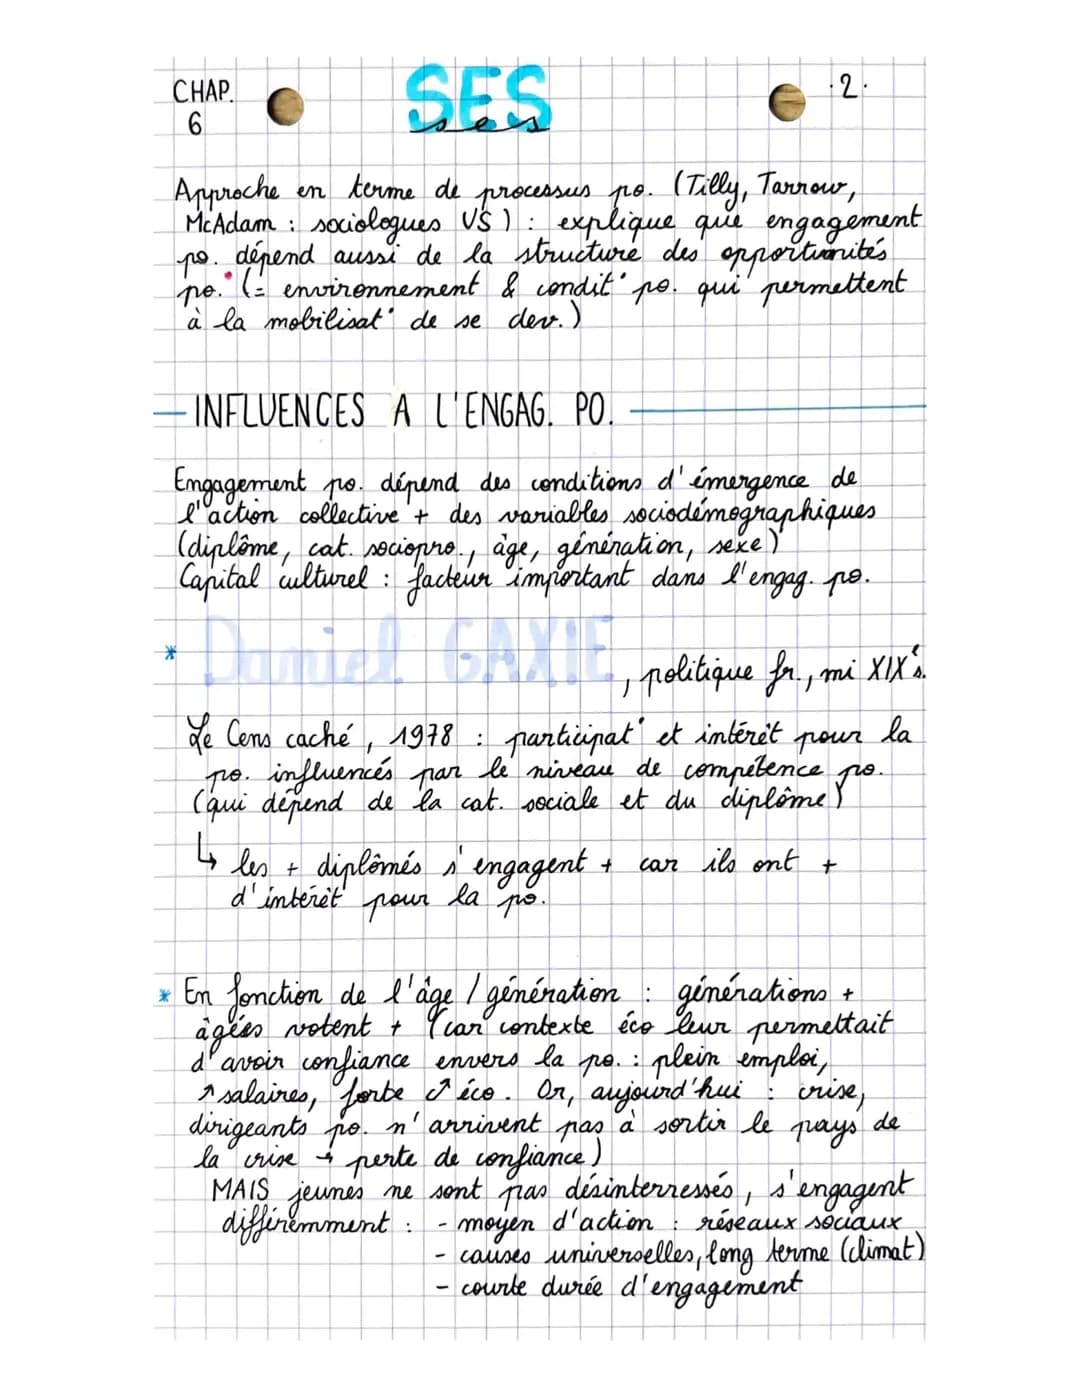 CHAP.
6
SES
ses
.2.
Approche en terme de processus po. (Tilly, Tarrow,
McAdam : sociologues US) : explique que engagement
po. dépend aussi de la structure des opportunités
po. (= environnement & condit° po. qui permettent
à la mobilisat° de se dev.)
INFLUENCES A L'ENGAG. PO.
Engagement po. dépend des conditions d'émergence de
l'action collective + des variables sociodémographiques
(diplôme, cat. sociopro., âge, génération, sexe)
Capital culturel : facteur important dans l'engag. po.
* Daniel GAXIE, politique fr., mi XIX's.
Le Cens caché, 1978 : participat° et intérêt pour la
po. influencés par le niveau de compétence po.
(qui dépend de la cat. sociale et du diplôme)
↳ les + diplômés s'engagent + car ils ont +
d'intérêt pour la po.
* En fonction de l'âge / génération : générations +
âgées votent + (car contexte éco leur permettait
d'avoir confiance envers la po. : plein emploi,
↗ salaires, forte ↗ éco. Or, aujourd'hui : crise,
dirigeants po. n'arrivent pas à sortir le pays de
la crise → perte de confiance)
MAIS jeunes ne sont pas désinterressés, s'engagent
différemment : - moyen d'action : réseaux sociaux
- causes universelles, long terme (climat)
- courte durée d'engagement